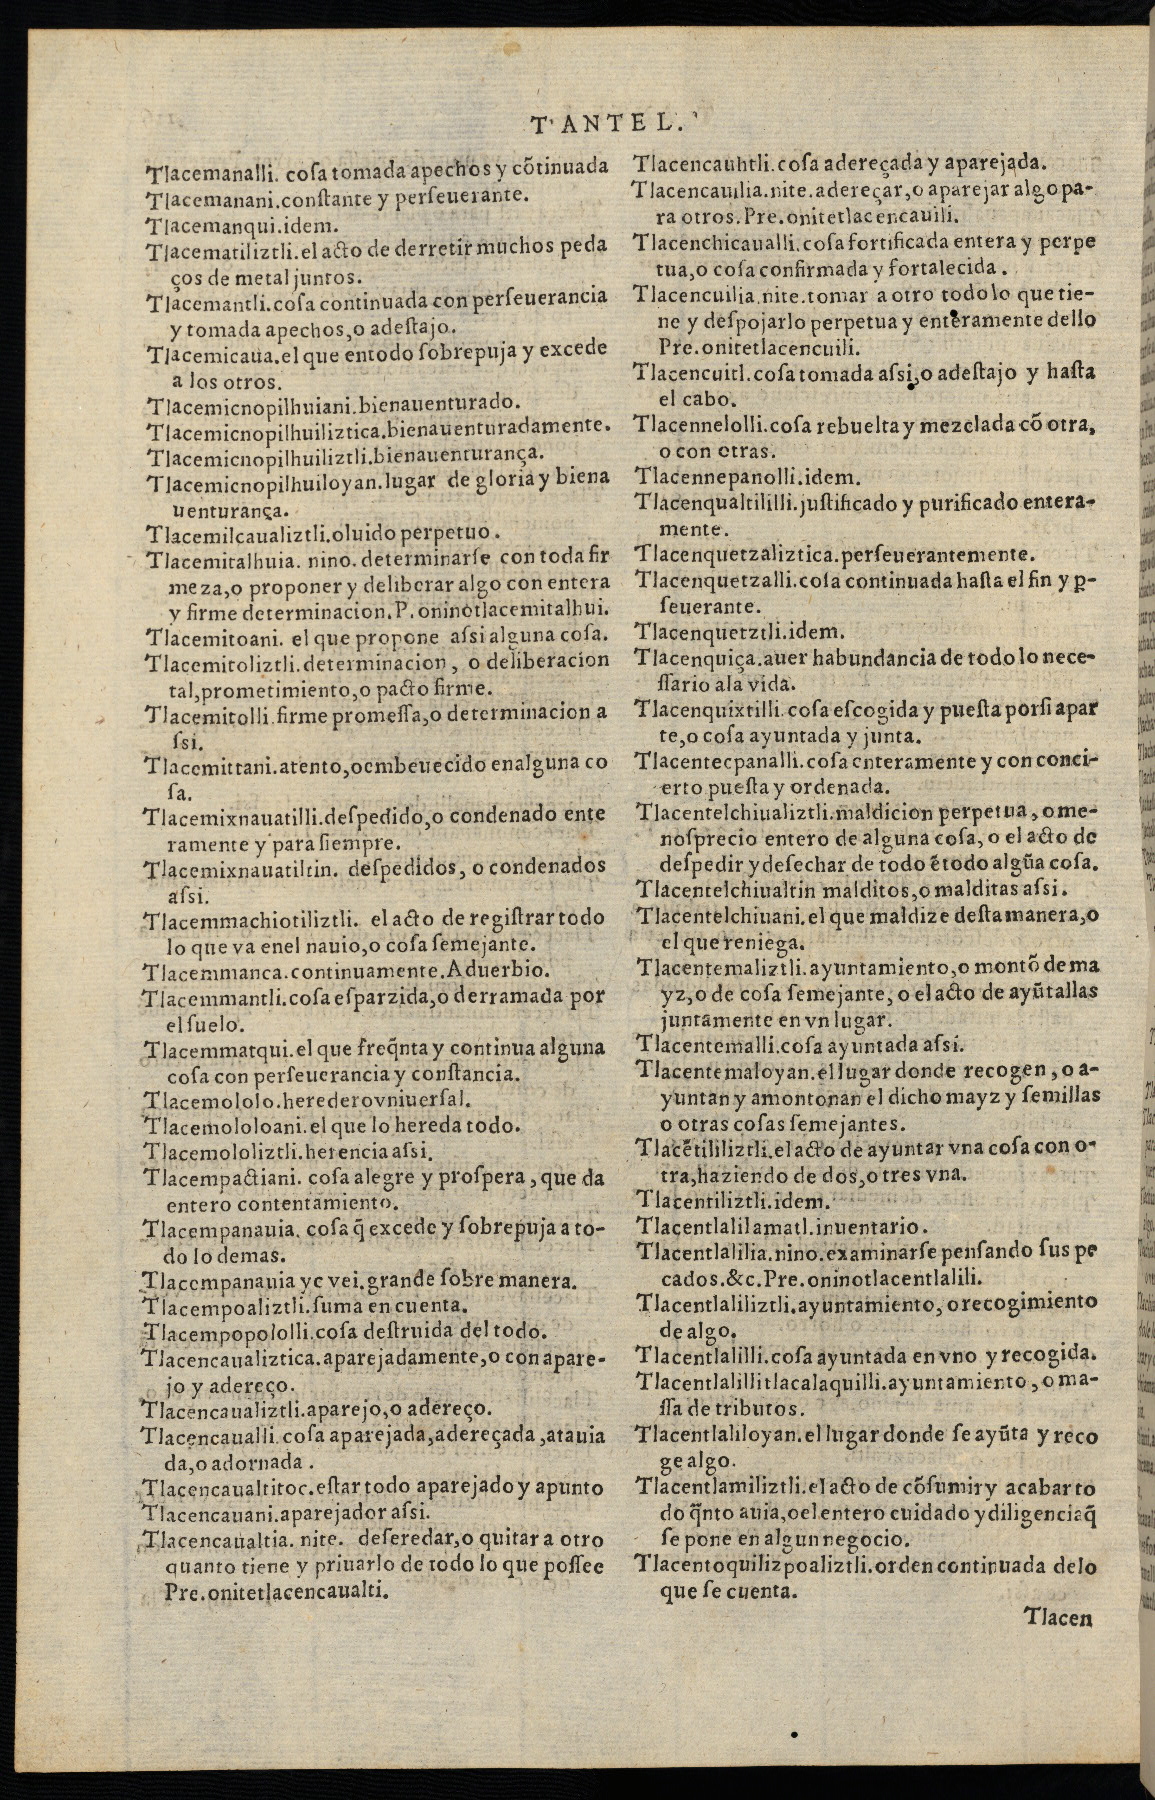 T ANTEL.
Tlacemanalli. cosa tomada apechos y cõtinuada
Tlacemanani.constante y perseuerante.
Tlacemanqui.idem.
Tlacematiliztli.el acto de derretir muchos peda
ços de metal juntos.
Tlacemantli.cosa continuada con perseuerancia
y tomada apechos,o adestajo.
Tlacemicaua.el que entodo sobrepuja y excede
a los otros.
Tlacemicnopilhuiani.bienauenturado.
Tlacemicnopilhuiliztica.bienauenturadamente.
Tlacemicnopilhuiliztli.bienauenturança.
Tlacemicnopilhuiloyan.lugar de gloria y biena
uenturança.
Tlacemilcaualiztli.oluido perpetuo.
Tlacemitalhuia. nino. determinarse con toda fir
meza,o proponer y deliberar algo con entera
y firme determinacion.P.oninotlacemitalhui.
Tlacemitoani. el que propone assi alguna cosa.
Tlacemitoliztli.determinacion, o deliberacion
tal,prometimiento,o pacto firme.
Tlacemitolli.firme promessa,o determinacion a
ssi.
Tlacemittani.atento,oembeuecido enalguna co
sa.
Tlacemixnauatilli.despedido,o condenado ente
ramente y para siempre.
Tlacemixnauatiltin. despedidos, o condenados
assi.
Tlacemmachiotiliztli. el acto de registrar todo
lo que va enel nauio,o cosa semejante.
Tlacemmanca.continuamente.Aduerbio.
Tlacemmantli.cosa esparzida,o derramada por
el suelo.
Tlacemmatqui.el que freq̃nta y continua alguna
cosa con perseuerancia y constancia.
Tlacemololo.herederovniuersal.
Tlacemololoani.el que lo hereda todo.
Tlacemololiztli.herencia assi.
Tlacempactiani. cosa alegre y prospera, que da
entero contentamiento.
Tlacempanauia. cosa q̃ excede y sobrepuja a to-
do lo demas.
Tlacempanauia yc vei.grande sobre manera.
Tlacempoaliztli.suma en cuenta.
Tlacempopololli.cosa destruida del todo.
Tlacencaualiztica.aparejadamente,o con apare-
jo y adereço.
Tlacencaualiztli.aparejo,o adereço.
Tlacencaualli.cosa aparejada,adereçada,atauia
da,o adornada.
Tlacencaualtitoc.estar todo aparejado y apunto
Tlacencauani.aparejador assi.
Tlacencaualtia. nite. deseredar,o quitar a otro
quanto tiene y priuarlo de todo lo que possee
Pre.onitetlacencaualti.
Tlacencauhtli.cosa adereçada y aparejada.
Tlacencauilia.nite.adereçar,o aparejar algo pa-
ra otros.Pre.onitetlacencauili.
Tlacenchicaualli.cosa fortificada entera y perpe
tua,o cosa confirmada y fortalecida.
Tlacencuilia.nite.tomar a otro todo lo que tie-
ne y despojarlo perpetua y enteramente dello
Pre.onitetlacencuili.
Tlacencuitl.cosa tomada assi,o adestajo y hasta
el cabo.
Tlacennelolli.cosa rebuelta y mezclada cõ otra,
o con otras.
Tlacennepanolli.idem.
Tlacenqualtililli.justificado y purificado entera-
mente.
Tlacenquetzaliztica.perseuerantemente.
Tlacenquetzalli.cosa continuada hasta el fin y p̱-
seuerante.
Tlacenquetztli.idem.
Tlacenquiça.auer habundancia de todo lo nece-
ssario ala vida.
Tlacenquixtilli.cosa escogida y puesta porsi apar
te,o cosa ayuntada y junta.
Tlacentecpanalli.cosa enteramente y con conci-
erto puesta y ordenada.
Tlacentelchiualiztli.maldicion perpetua, o me-
nosprecio entero de alguna cosa, o el acto de
despedir y desechar de todo ẽtodo algũa cosa.
Tlacentelchiualtin malditos,o malditas assi.
Tlacentelchiuani.el que maldize desta manera,o
el que reniega.
Tlacentemaliztli.ayuntamiento,o montõ de ma
yz,o de cosa semejante, o el acto de ayũtallas
juntamente en vn lugar.
Tlacentemalli.cosa ayuntada assi.
Tlacentemaloyan.el lugar donde recogen, o a-
yuntan y amontonan el dicho mayz y semillas
o otras cosas semejantes.
Tlacẽtililiztli.el acto de ayuntar vna cosa con o-
tra,haziendo de dos,o tres vna.
Tlacentiliztli.idem.
Tlacentlalilamatl.inuentario.
Tlacentlalilia.nino.examinarse pensando sus pe
cados.&c.Pre.oninotlacentlalili.
Tlacentlaliliztli.ayuntamiento, o recogimiento
de algo.
Tlacentlalilli.cosa ayuntada en vno y recogida.
Tlacentlalillitlacalaquilli.ayuntamiento, o ma-
ssa de tributos.
Tlacentlaliloyan.el lugar donde se ayũta y reco
ge algo.
Tlacentlamiliztli.el acto de cõsumir y acabar to
do q̃nto auia,oel entero cuidado y diligencia q̃
se pone en algun negocio.
Tlacentoquilizpoaliztli.orden continuada de lo
que se cuenta.
Tlacen